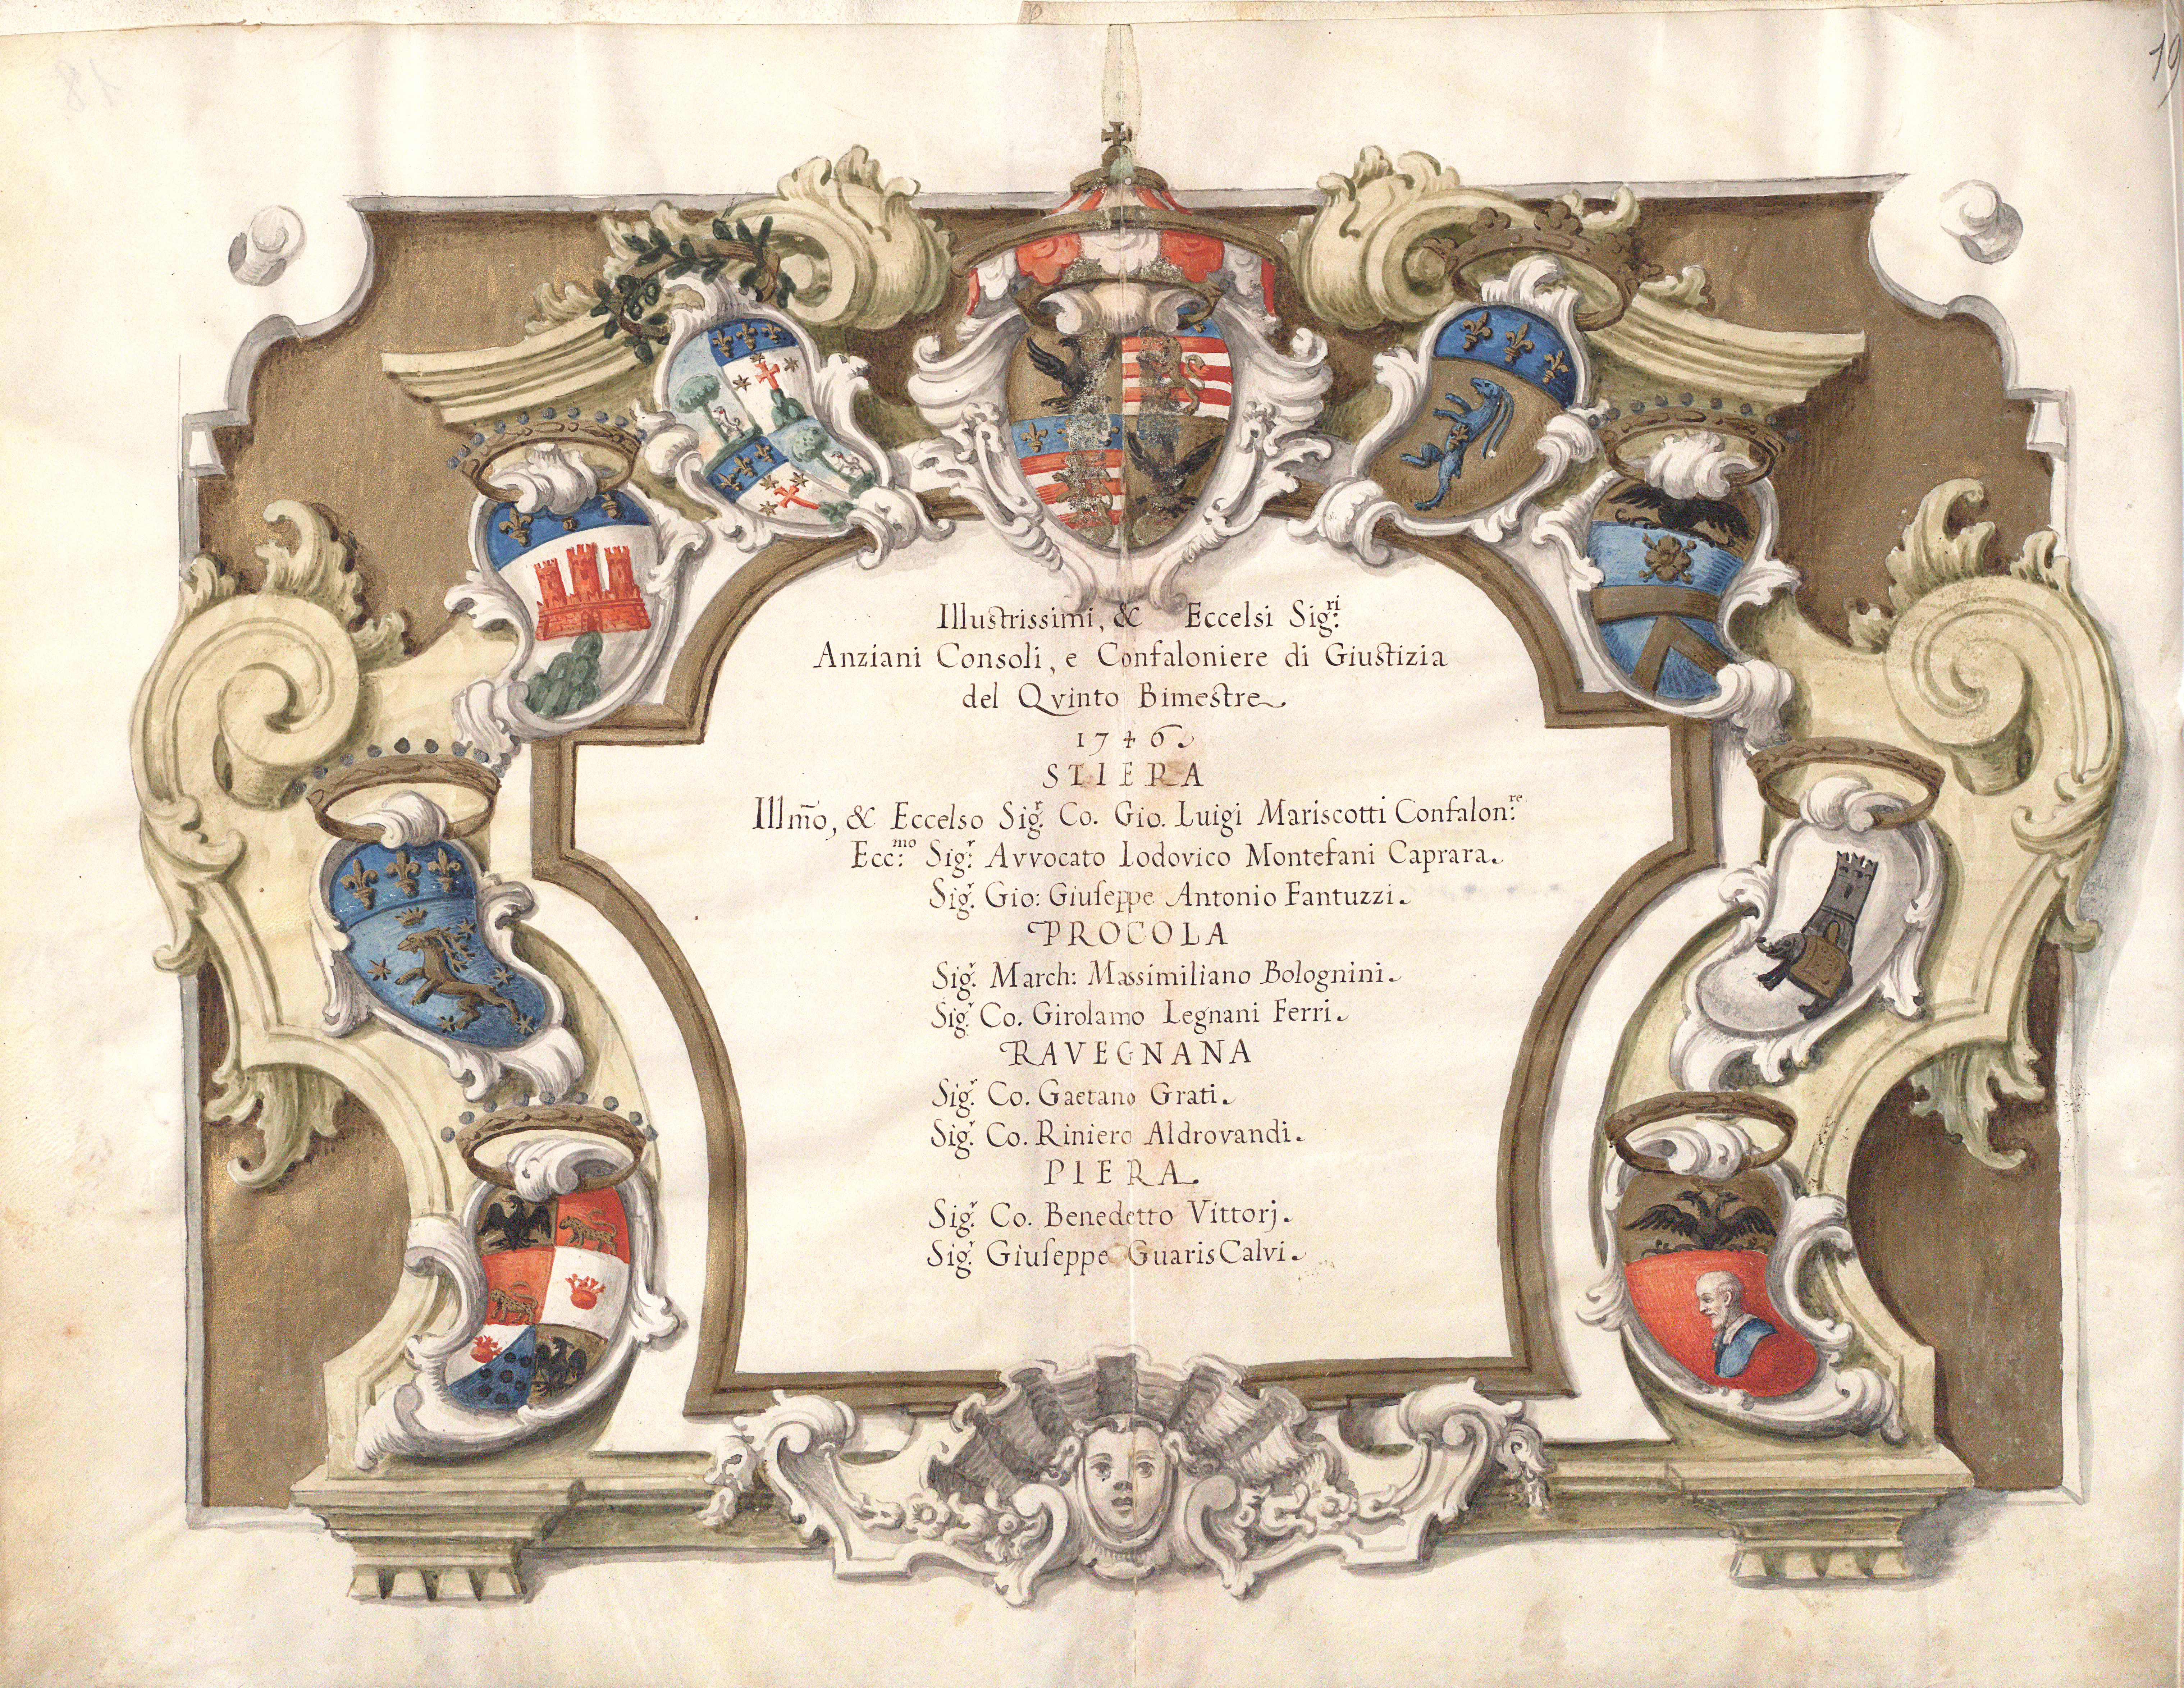 19
18
Illustrissimi, & Eccelsi Sig.ri
Anziani Consoli, e Confaloniere di Giustizia
del Qvinto Bimestre.
1746.
STIERA
Illm̃o, & Eccelso Sig.r Co. Gio. Luigi Mariscotti Confalon.re
Ecc.mo Sig.r Avvocato Lodovico Montefani Caprara.
Sig.r Gio: Giuseppe Antonio Fantuzzi.
PROCOLA
Sig.r March: Massimiliano Bolognini.
Sig.r Co. Girolamo Legnani Ferri.
RAVEGNANA
Sig.r Co. Gaetano Grati.
Sig.r Co. Riniero Aldrovandi.
PIERA.
Sig.r Co. Benedetto Vittorj.
Sig.r Giuseppe Guaris Calvi.